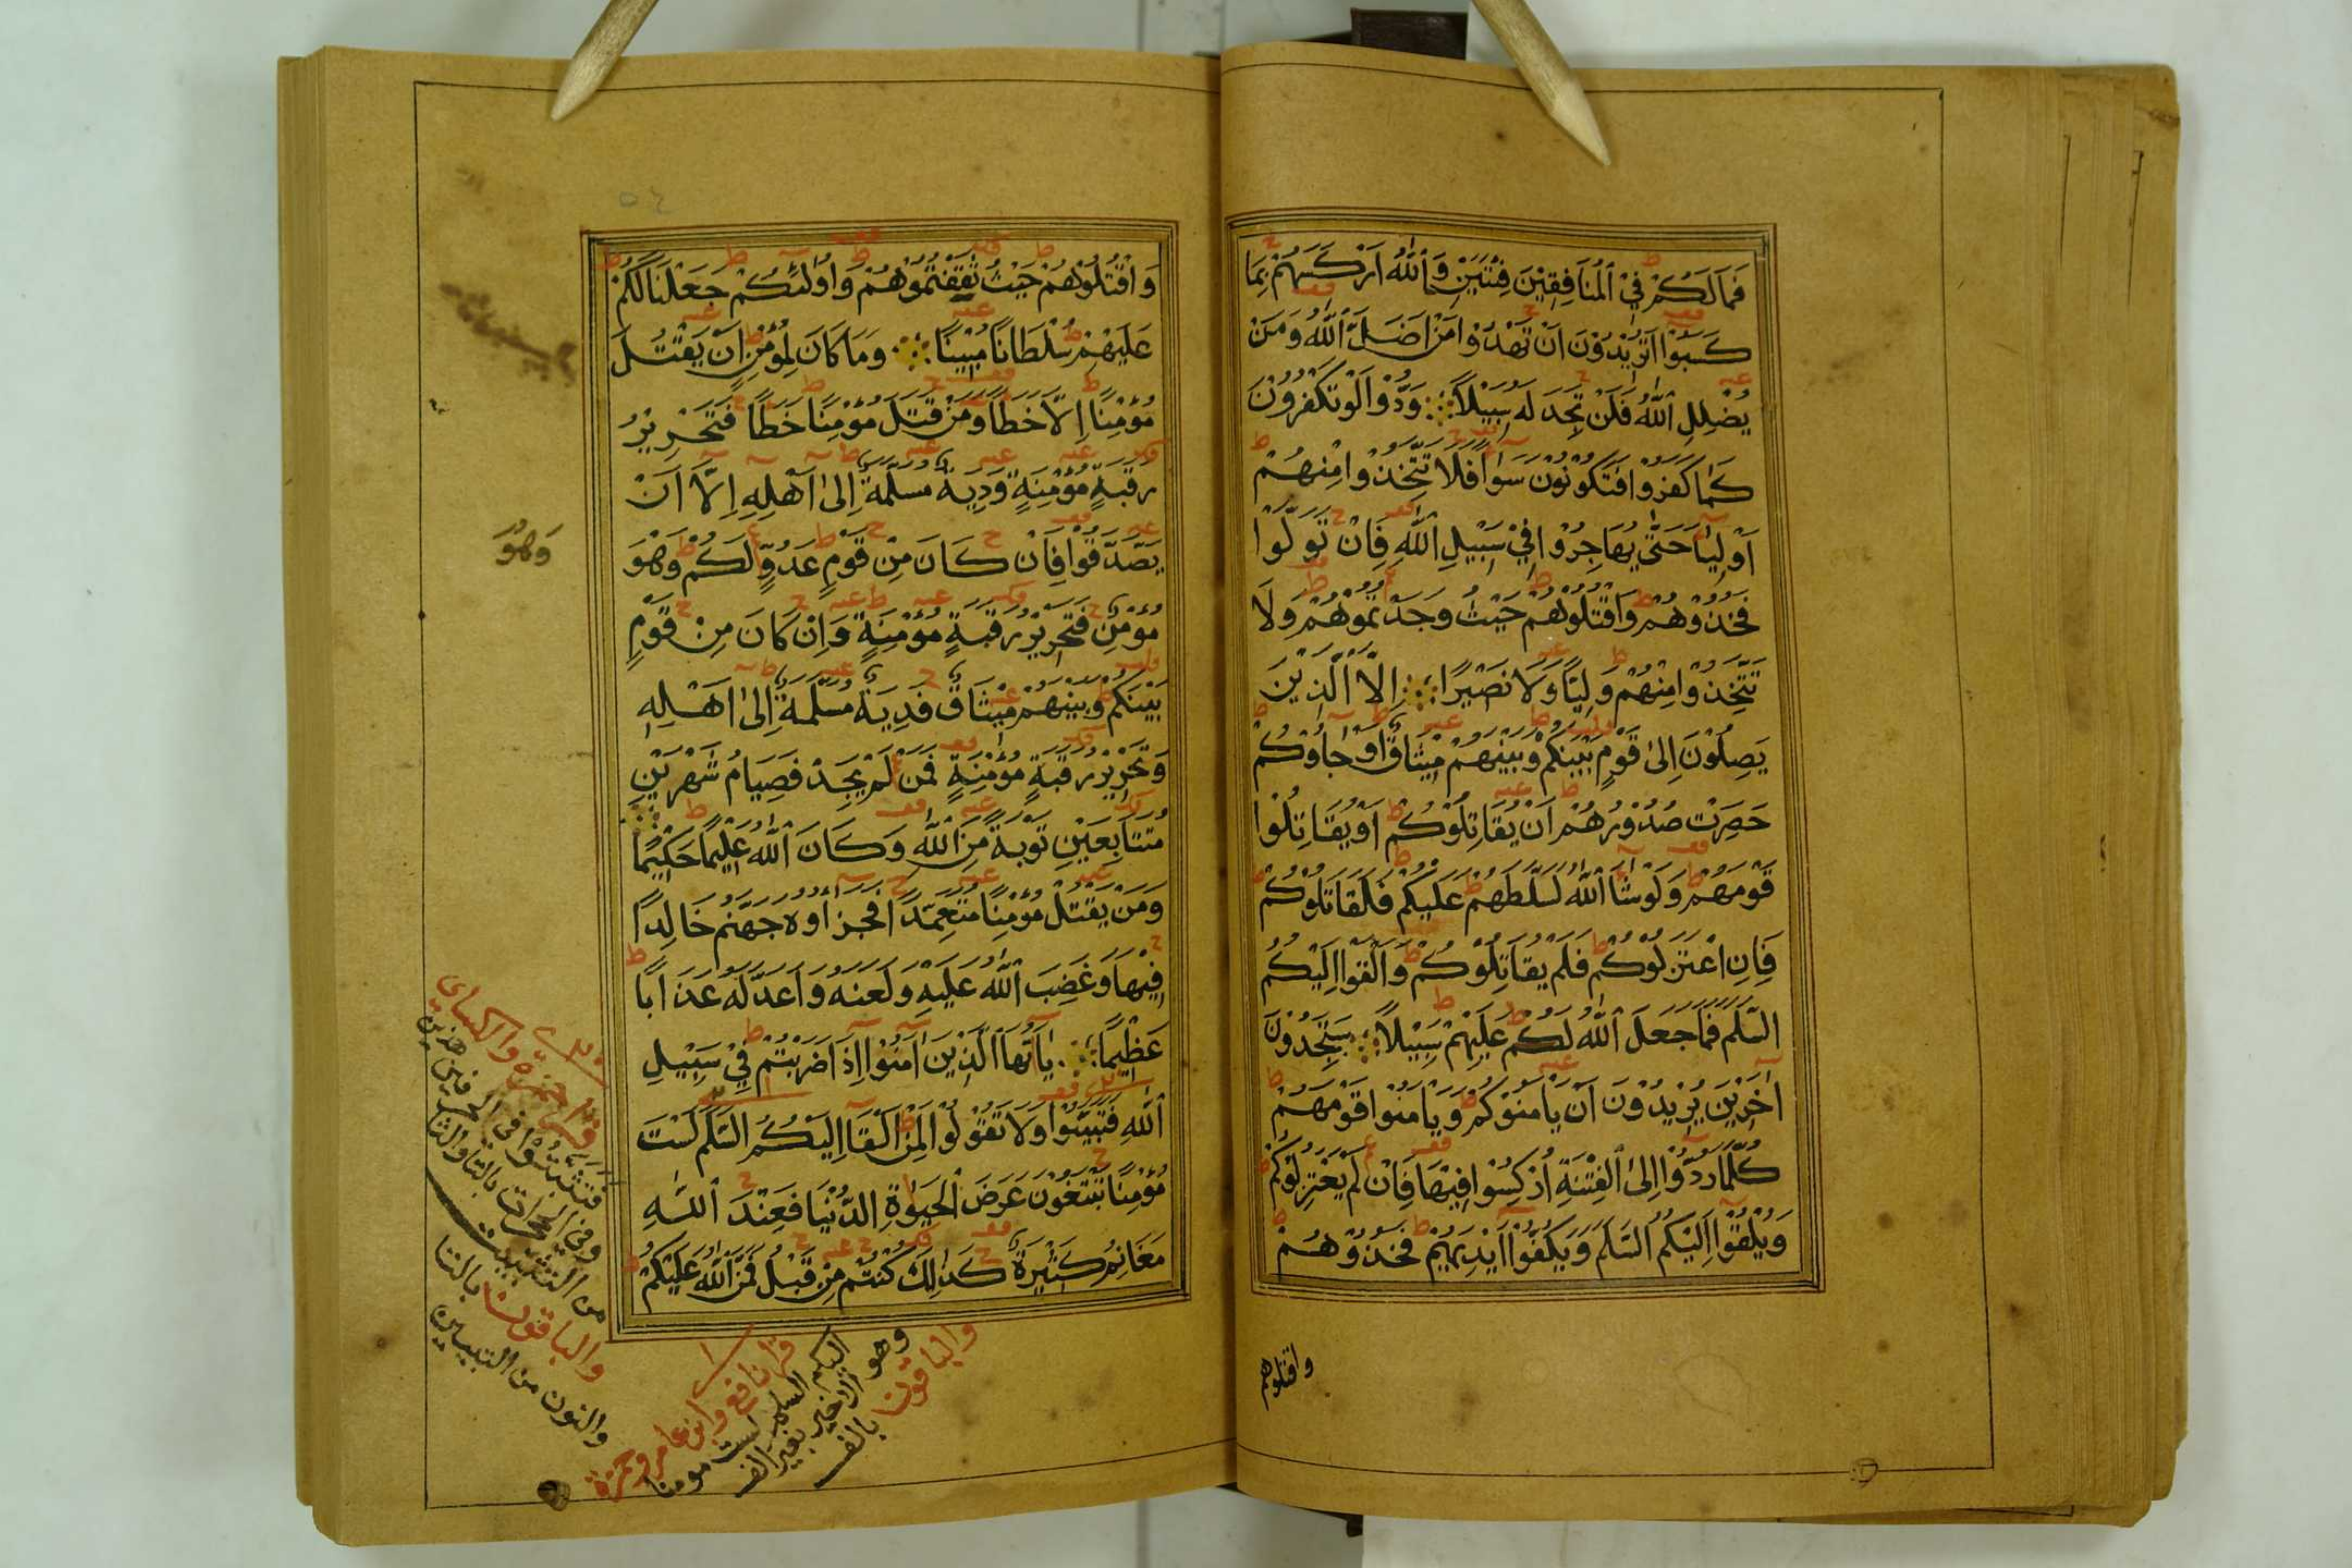 فَمَا لَكُمْ فِي الْمُنَافِقِيْنَ فِئَتَيْنِ وَاللّٰهُ اَرْكَسَهُمْ بِمَا
كَسَبُوْا اَتُرِيْدُوْنَ اَنْ تَهْدُوْا مَنْ اَضَلَّ اللّٰهُ وَمَنْ
يُضْلِلِ اللّٰهُ فَلَنْ تَجِدَ لَهُ سَبِيْلًا وَدُّوْا لَوْ تَكْفُرُوْنَ
كَمَا كَفَرُوْا فَتَكُوْنُوْنَ سَوَآءً فَلَا تَتَّخِذُوْا مِنْهُمْ
اَوْلِيَآءَ حَتّٰى يُهَاجِرُوْا فِيْ سَبِيْلِ اللّٰهِ فَاِنْ تَوَلَّوْا
فَخُذُوْهُمْ وَاقْتُلُوْهُمْ حَيْثُ وَجَدْتُمُوْهُمْ وَلَا
تَتَّخِذُوْا مِنْهُمْ وَلِيًّا وَلَا نَصِيْرًا اِلَّا الَّذِيْنَ
يَصِلُوْنَ اِلٰى قَوْمٍ بَيْنَكُمْ وَبَيْنَهُمْ مِيْثَاقٌ اَوْ جَاؤُكُمْ
حَصِرَتْ صُدُوْرُهُمْ اَنْ يُقَاتِلُوْكُمْ اَوْ يُقَاتِلُوْا
قَوْمَهُمْ وَلَوْ شَآءَ اللّٰهُ لَسَلَّطَهُمْ عَلَيْكُمْ فَلَقَاتَلُوْكُمْ
فَاِنِ اعْتَزَلُوْكُمْ فَلَمْ يُقَاتِلُوْكُمْ وَاَلْقَوْا اِلَيْكُمُ
السَّلَمَ فَمَا جَعَلَ اللّٰهُ لَكُمْ عَلَيْهِمْ سَبِيْلًا سَتَجِدُوْنَ
اٰخَرِيْنَ يُرِيْدُوْنَ اَنْ يَأْمَنُوْكُمْ وَيَأْمَنُوْا قَوْمَهُمْ
كُلَّمَا رُدُّوْا اِلَى الْفِتْنَةِ اُرْكِسُوْا فِيْهَا فَاِنْ لَمْ يَعْتَزِلُوْكُمْ
وَيُلْقُوْا اِلَيْكُمُ السَّلَمَ وَيَكُفُّوْا اَيْدِيَهُمْ فَخُذُوْهُمْ
واقتلوهم
وَاقْتُلُوْهُمْ حَيْثُ ثَقِفْتُمُوْهُمْ وَاُولٰئِكُمْ جَعَلْنَا لَكُمْ
عَلَيْهِمْ سُلْطَانًا مُبِيْنًا وَمَا كَانَ لِمُؤْمِنٍ اَنْ يَقْتُلَ
مُؤْمِنًا اِلَّا خَطَأً وَمَنْ قَتَلَ مُؤْمِنًا خَطَأً فَتَحْرِيْرُ
رَقَبَةٍ مُؤْمِنَةٍ وَدِيَةٌ مُسَلَّمَةٌ اِلٰى اَهْلِهِ اِلَّا اَنْ
يَصَّدَّقُوْا فَاِنْ كَانَ مِنْ قَوْمٍ عَدُوٍّ لَكُمْ وَهُوَ
وَهُوَ
مُؤْمِنٌ فَتَحْرِيْرُ رَقَبَةٍ مُؤْمِنَةٍ وَاِنْ كَانَ مِنْ قَوْمٍ
بَيْنَكُمْ وَبَيْنَهُمْ مِيْثَاقٌ فَدِيَةٌ مُسَلَّمَةٌ اِلٰى اَهْلِهِ
وَتَحْرِيْرُ رَقَبَةٍ مُؤْمِنَةٍ فَمَنْ لَمْ يَجِدْ فَصِيَامُ شَهْرَيْنِ
مُتَتَابِعَيْنِ تَوْبَةً مِنَ اللّٰهِ وَكَانَ اللّٰهُ عَلِيْمًا حَكِيْمًا
وَمَنْ يَقْتُلْ مُؤْمِنًا مُتَعَمِّدًا فَجَزَاؤُهُ جَهَنَّمُ خَالِدًا
فِيْهَا وَغَضِبَ اللّٰهُ عَلَيْهِ وَلَعَنَهُ وَاَعَدَّ لَهُ عَذَابًا
عَظِيْمًا يَا اَيُّهَا الَّذِيْنَ اٰمَنُوْا اِذَا ضَرَبْتُمْ فِيْ سَبِيْلِ
اللّٰهِ فَتَبَيَّنُوْا وَلَا تَقُوْلُوْا لِمَنْ اَلْقٰى اِلَيْكُمُ السَّلَمَ لَسْتَ
مُؤْمِنًا تَبْتَغُوْنَ عَرَضَ الْحَيٰوةِ الدُّنْيَا فَعِنْدَ اللّٰهِ
مَغَانِمُ كَثِيْرَةٌ كَذٰلِكَ كُنْتُمْ مِنْ قَبْلُ فَمَنَّ اللّٰهُ عَلَيْكُمْ
قرا حمزه والكسائي
فتثبتوا في الحرفين هنا
وفي الحجرات بالثا والتا
من التثبيت
والباقون بالتا
والنون من التبيين
قرا نافع وابن عامر وحمزة
اليكم السلم لست مومنا
وهو الاخير بغير الف
والباقون بالف